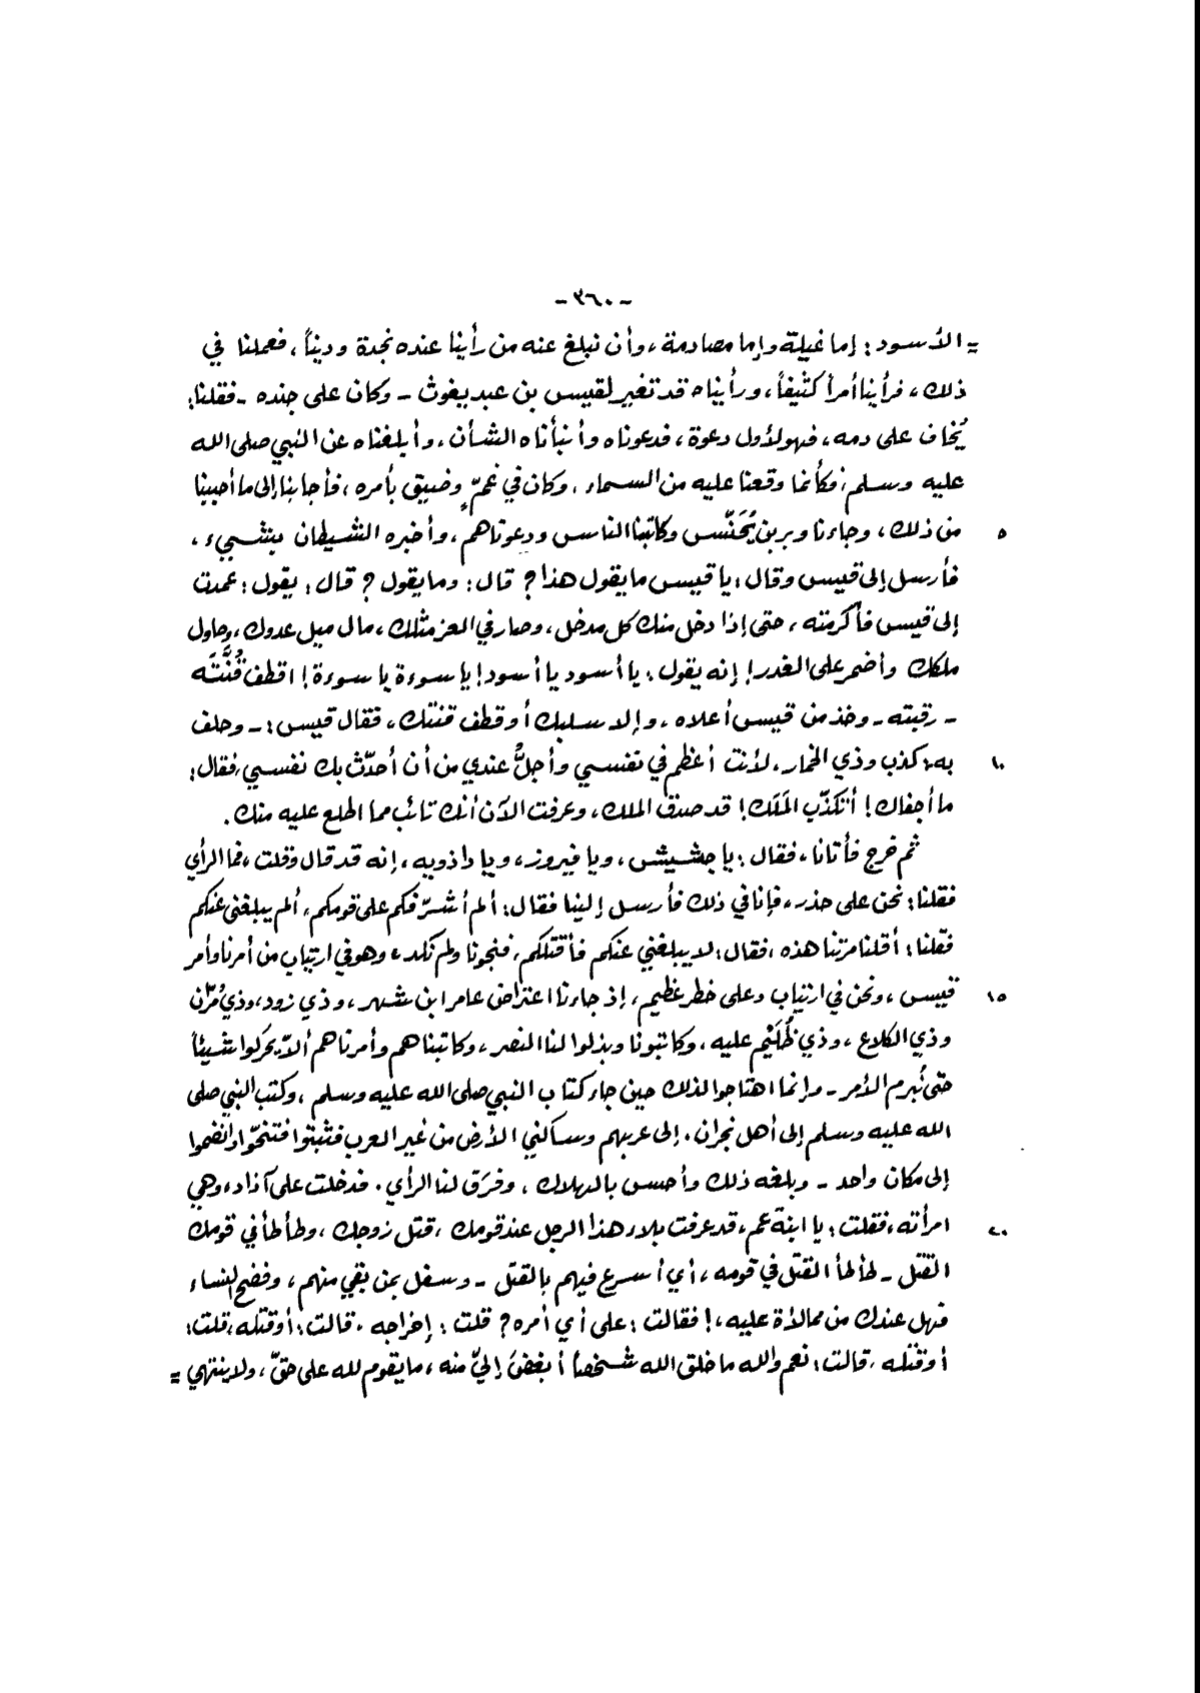 - ٣٦٠ -
= الأسود: إما غيلة وإما مصادمة، وأن نبلغ عنه من رأينا عنده نجدة وديناً، فعملنا في
ذلك، فرأينا أمراً كثيفاً، ورأيناه قد تغير لقيس بن عبد يغوث - وكان على جنده - فقلنا:
يُخاف على دمه، فهو لأول دعوة، فدعوناه وأنبأناه الشأن، وأبلغناه عن النبي صلى الله
عليه وسلم، فكأنما وقعنا عليه من السماء، وكان في غمّ وضيق بأمره، فأجابنا إلى ما أحببنا
٥ من ذلك، وجاءنا وبر بن يُحَنّس وكاتبنا الناس ودعوناهم، وأخبره الشيطان بشيء،
فأرسل إلى قيس وقال: يا قيس ما يقول هذا؟ قال: وما يقول؟ قال: يقول: عمدت
إلى قيس فأكرمته، حتى إذا دخل منك كل مدخل، وصار في العز مثلك، مال ميل عدوك، وحاول
ملكك وأضمر على الغدر! إنه يقول: يا أسود يا أسود! يا سوءة يا سوءة! اقطف قُنَّته
- رقبته - وخذ من قيس أعلاه، وإلا سلبك أو قطف قنتك، فقال قيس: - وحلف
١٠ به: كذب وذي الخمار، لأنت أعظم في نفسي وأجلُّ عندي من أن أحدّث بك نفسي، فقال:
ما أجفاك! أتكذّب المَلَك! قد صدق الملك، وعرفت الآن أنك تائب مما اطلع عليه منك.
ثم خرج فأتانا، فقال: يا جشيش، ويا فيروز، ويا داذويه، إنه قد قال وقلت، فما الرأي
فقلنا: نحن على حذر، فإنا في ذلك فأرسل إلينا فقال: ألم أشرّفكم على قومكم، ألم يبلغني عنكم
فقلنا: أقلنا مرتنا هذه، فقال: لا يبلغني عنكم فأقتلكم، فنجونا ولم نكد، وهو في ارتياب من أمرنا وأمر
١٥ قيس، ونحن في ارتياب وعلى خطر عظيم، إذ جاءنا اعتراض عامر ابن شهر، وذي زود، وذي مُرّان
وذي الكلاع، وذي ظُلَيْم عليه، وكاتبونا وبذلوا لنا النصر، وكاتبناهم وأمرناهم ألاّ يحركوا شيئاً
حتى نُبرم الأمر - وإنما اهتاجوا لذلك حين جاء كتاب النبي صلى الله عليه وسلم، وكتب النبي صلى
الله عليه وسلم إلى أهل نجران، إلى عربهم وساكني الأرض من غير العرب فثبتوا فتنحّوا وانضموا
إلى مكان واحد - وبلغه ذلك وأحس بالهلاك، وفَرَق لنا الرأي. فدخلت على آذاد، وهي
٢٠ امرأته، فقلت: يا ابنة عم، قد عرفت بلاء هذا الرجل عند قومك، قتل زوجك، وطأطأ في قومك
القتل - طأطأ القتل في قومه، أي أسرع فيهم بالقتل - وسفل بمن بقي منهم، وفضح النساء
فهل عندك من ممالأة عليه،! فقالت: على أي أمره؟ قلت: إخراجه. قالت: أو قتله، قلت:
أو قتله، قالت: نعم والله ما خلق الله شخصاً أبغضَ إليّ منه، ما يقوم لله على حقّ، ولا ينتهي =